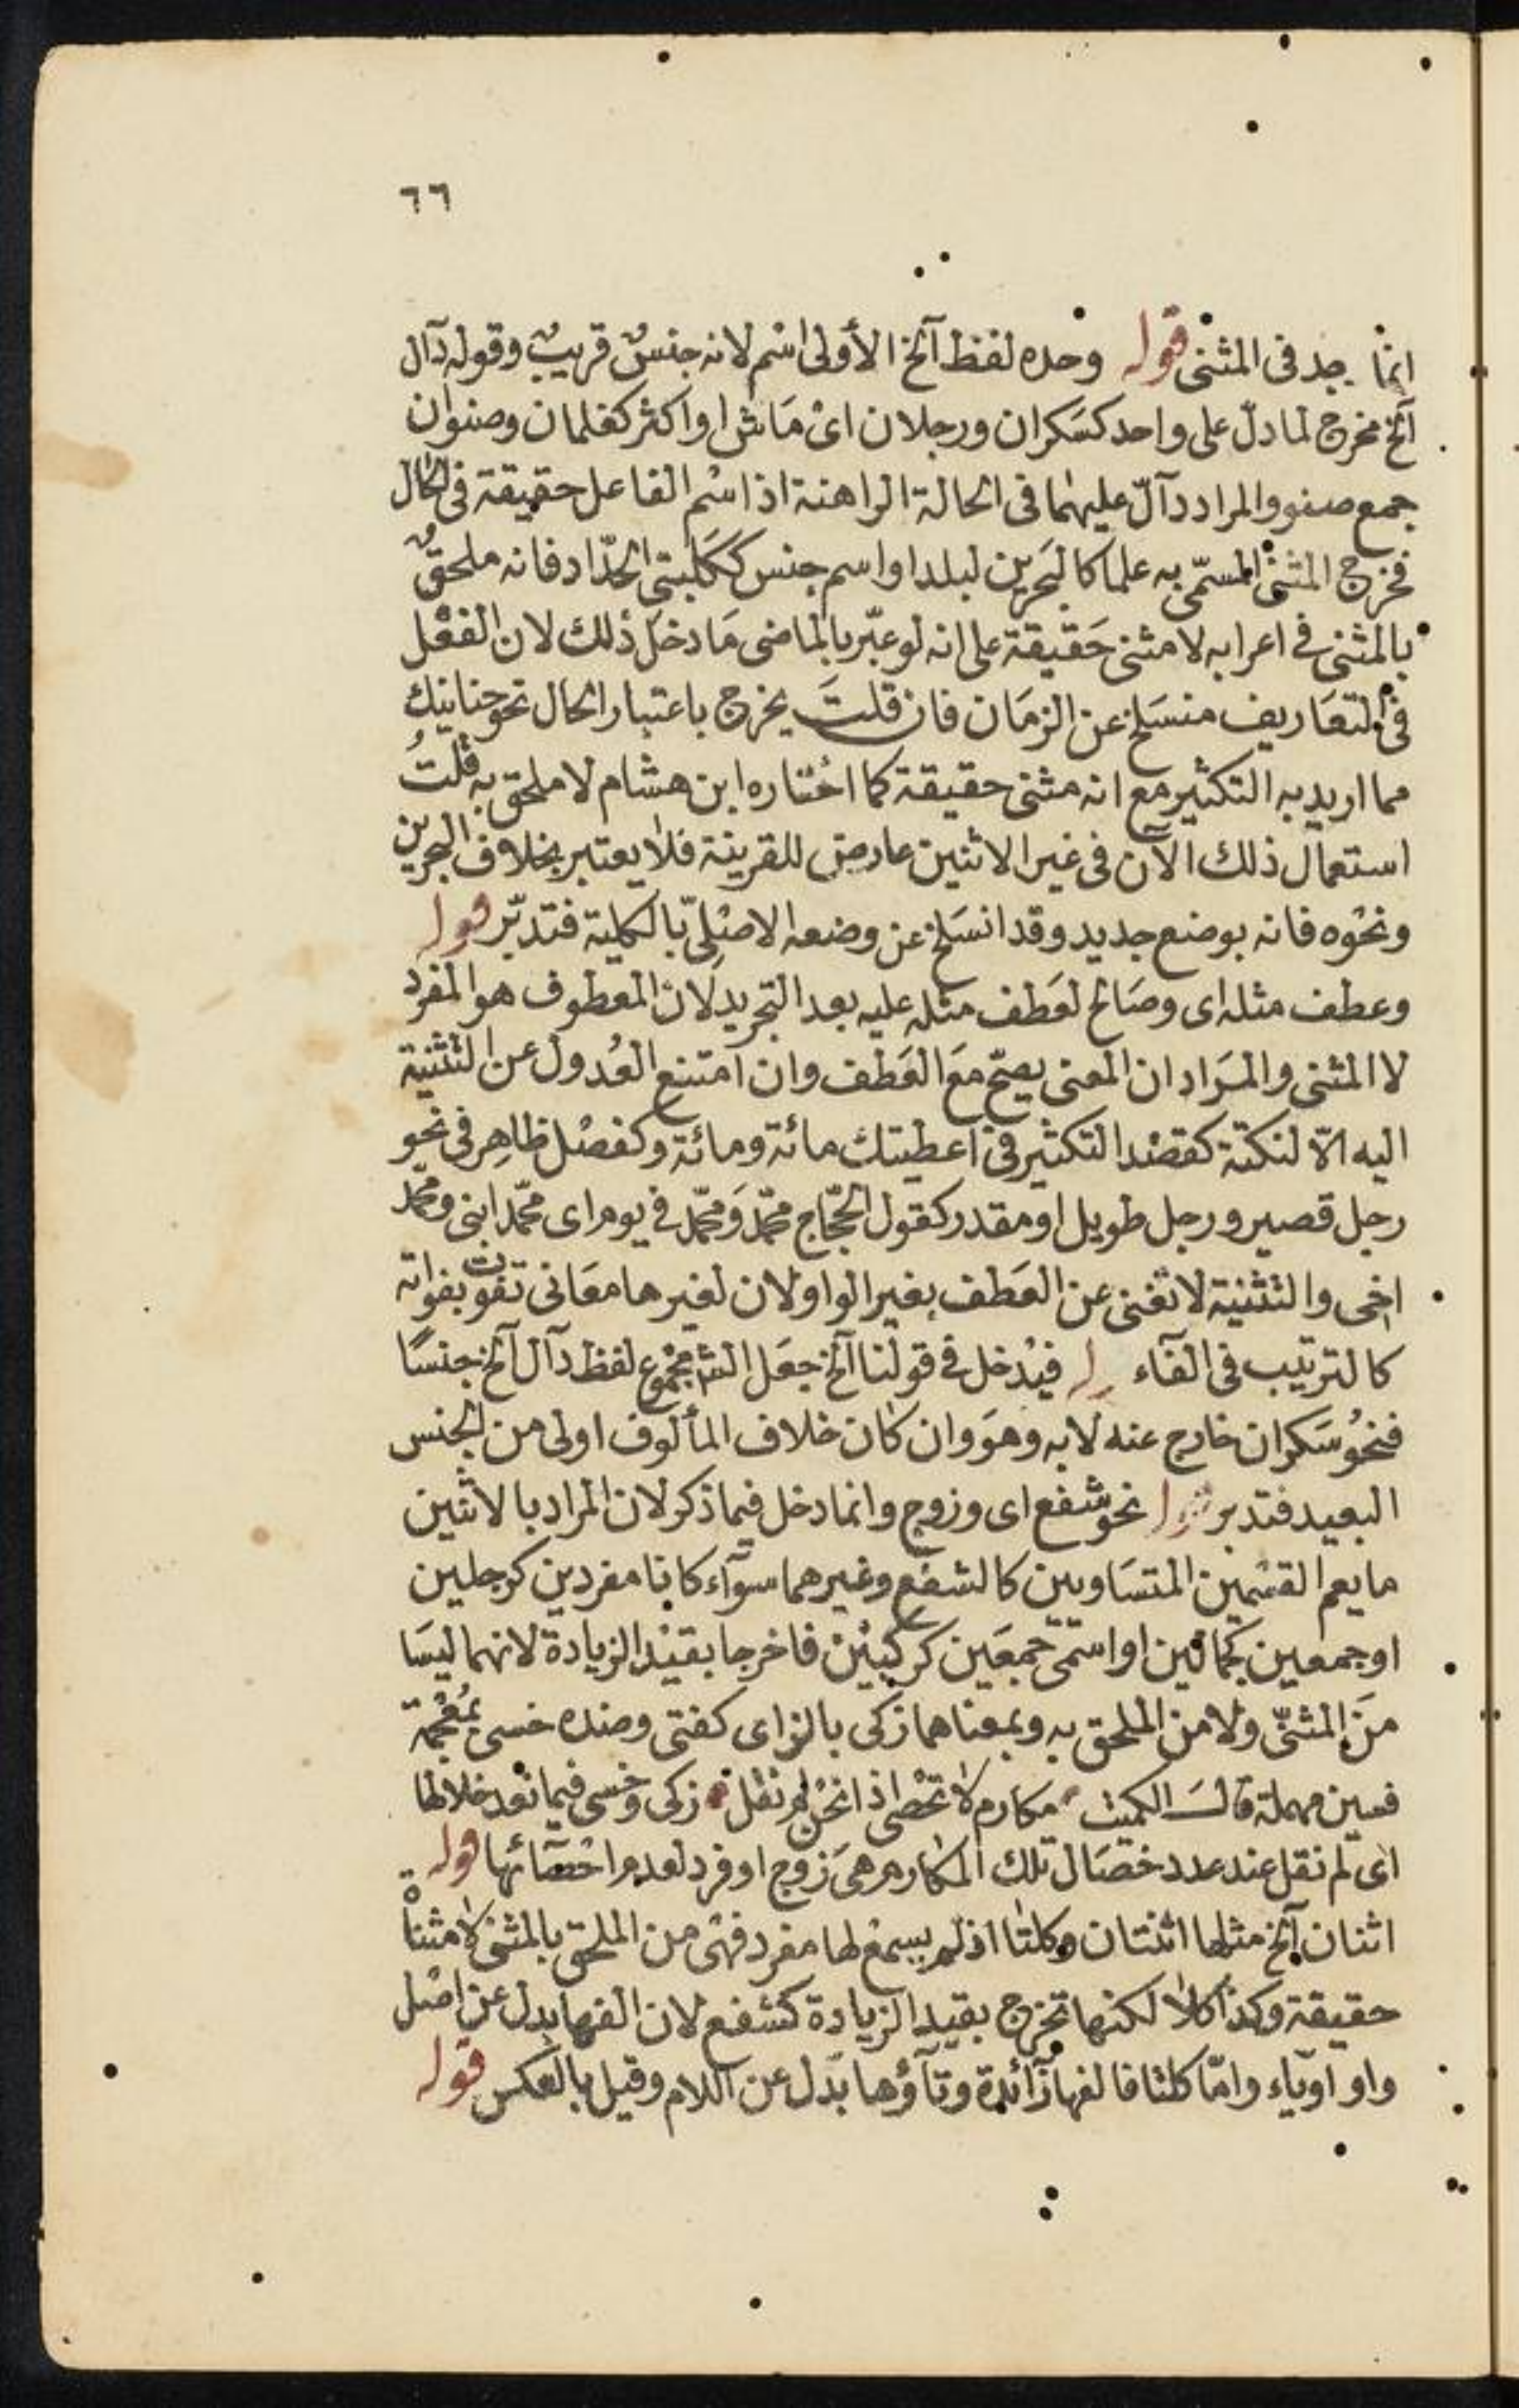 ٦٦
انما يوجد فى المثنى قوله وحده لفظ آلخ الأولى اسْم لانه جنسٌ قريبٌ وقوله دآل
آلخ مخرج لما دلّ على واحد كسَكران ورجلان اى مَاش او اكثر كغلمان وصنوان
جمع صنو والمراد دآلّ عليهما فى الحالة الراهنة اذ اسْم الفاعل حقيقة فى الحال
فخرج المثنىّ المسمّى به علما كالبَحرين لبلد او اسم جنس ككَلبتى الحدّاد فانه ملحقٌ
بالمثنى فى اعرابه لا مثنى حَقيقة على انه لو عبّر بالماضى مَا دخلَ ذلك لان الفعْل
فى التعَاريف منسَلخ عن الزمَان فان قلتَ يخرج باعتبار الحال نحو حنانيك
مما اريد به التكثير مع انه مثنى حقيقة كما اخْتاره ابن هشام لا ملحق به قلْتُ
استعمال ذلك الآن فى غير الاثنين عارض للقرينة فلا يعتبر بخلاف البحرين
ونحْوه فانه بوضع جديد وقد انسَلخ عن وضعه الاصْلِىّ بالكلية فتدبّر قوله
وعطف مثله اى وصَالح لعَطف مثله عليه بعد التجريد لان المعطوف هو المفرد
لا المثنى والمرَاد ان المعنى يصحّ مَعَ العَطف وان امتنع العُدول عن التثنية
اليه الّا لنكتة كقصْد التكثير فى اعطيتك مائة ومائة وكفصْل ظاهِر فى نحو
رجل قصير ورجل طويل او مقدر كقول الحجّاج محمّد وَمحمّد فى يوم اى محمّد ابنى ومحمّد
اخى والتثنية لا تغنى عن العَطف بغير الواو لان لغيرها معَانى تفوت بفواته
كالترتيب فى الفآء قوله فيْدخل فى قولنا آلخ جعَل الش مجْموع لفظ دآل آلخ جنسًا
فنحوُ سَكران خارج عنه لا به وهوَ وان كان خلاف المألوف اولى من الجنس
البعيد فتدبر قوله نحو شفع اى وزوج وانما دخل فيما ذكر لان المراد بالاثنين
ما يعم القسْمين المتسَاويين كالشفع وغيرهما سوآء كانا مفردين كرجلين
او جمعين كجمالين او اسمىّ جمعَين كركبيْن فاخرجا بقيْد الزيادة لانهما ليسَا
منَ المثنىّ ولا من الملحق به وبمعناهما زكى بالزاى كفتى وضده خسى بمُعْجمة
فسين مهملة قالَ الكميت مكارم لا تحْصى اذا نحْن لم نقل زكى وخسى فيما نعد خلالها
اى لم نقل عند عدد خصَال تلك المكارم هىَ زوج او فرد لعدم احْصَائها قوله
اثنان آلخ مثلها اثنتان وكلتا اذ لم يسمعْ لها مفرد فهْى من الملحق بالمثنى لا مثناةْ
حقيقة وكذا كلا لكنها تخرج بقيد الزيادة كشفع لان الفها بدل عن اصْل
واو او يآء وامّا كلتا فالفها زآئدة وتآؤها بدَل عن اللام وقيل بالعكس قوله